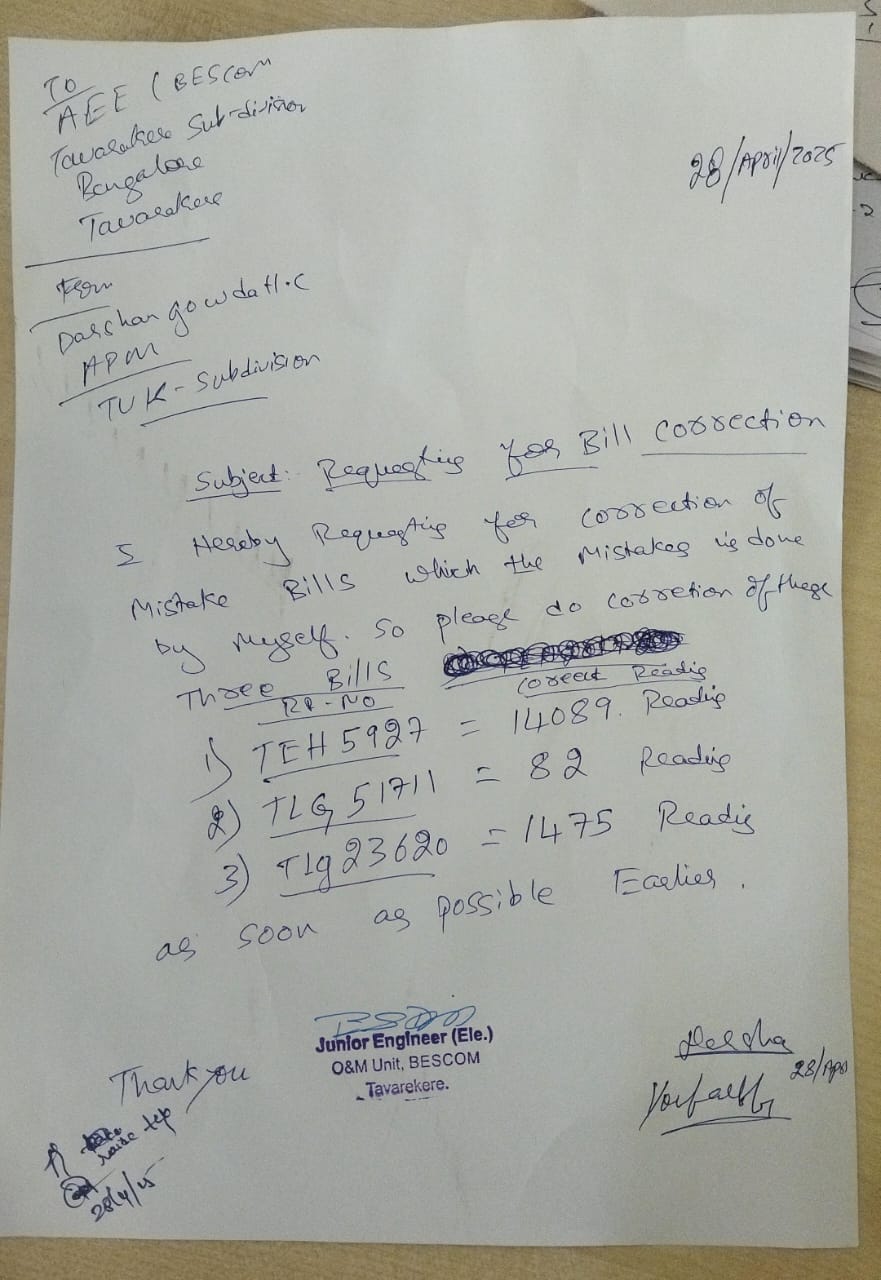 To
AEE ( BESCOM
Tavarekere Sub-division
Bangalore
Tavarekere
28/April/2025
From
Darshan gowda H.C
APM
TVK - Subdivision
Subject: Requesting for Bill Correction
I Hereby Requesting for correction of
Mistake Bills which the Mistakes is done
by myself. So please do corretion of these
Three Bills
RR-NO Coreect Readig
1) TEH 5927 = 14089. Readig
2) TLG 51711 = 82 Readig
3) TLG 23620 = 1475 Readig
as soon as possible Earlier.
Thank you
Junior Engineer (Ele.)
O&M Unit, BESCOM
Tavarekere.
28/Apr
raise
28/4/25